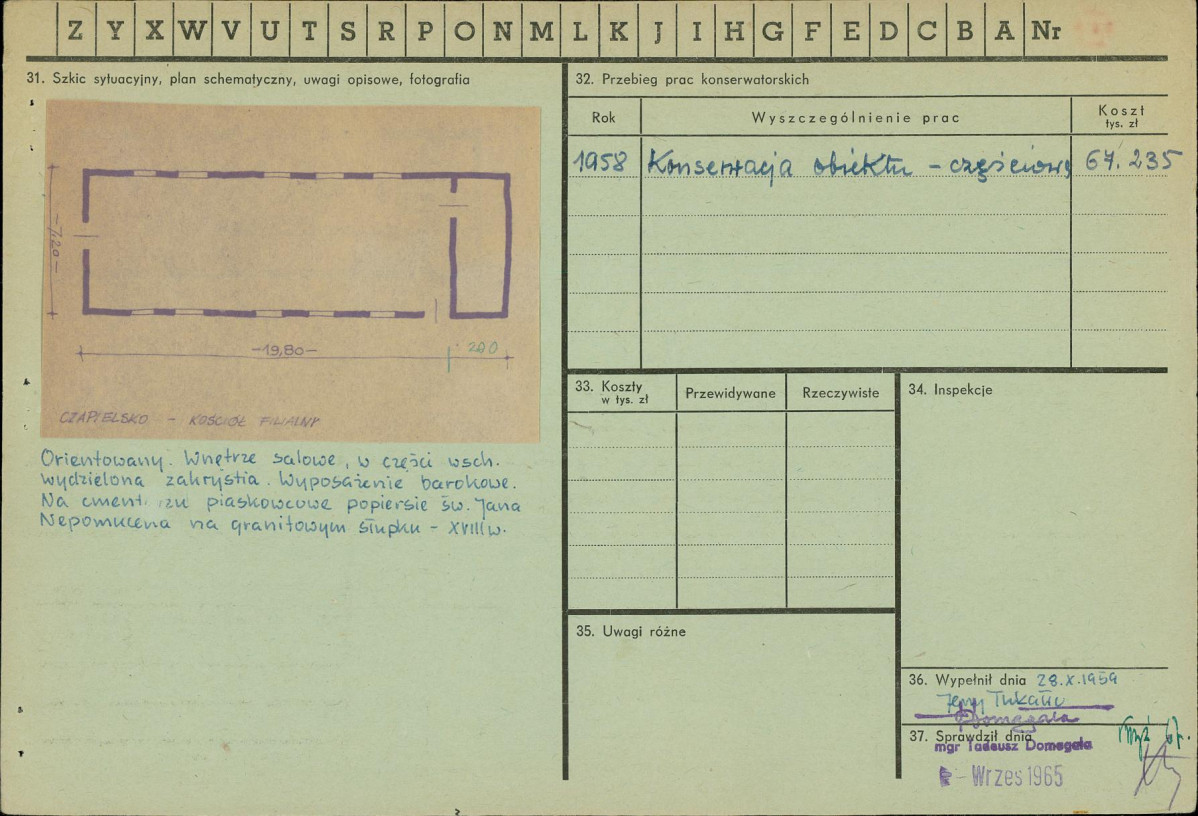 Z Y X W V U T S R P O N M L K J I H G F E D C B A Nr
31. Szkic sytuacyjny, plan schematyczny, uwagi opisowe, fotografia
-7,20-
-19,80-
200
CZAPIELSKO - KOŚCIÓŁ FILIALNY
Orientowany. Wnętrze salowe, w części wsch.
wydzielona zakrystia. Wyposażenie barokowe.
Na cment. zu piaskowcowe popiersie św. Jana
Nepomucena na granitowym słupku - XVIII w.
32. Przebieg prac konserwatorskich
Rok Wyszczególnienie prac Koszt
tys. zł
1958 Konserwacja obiektu - częściowa 67.235
33. Koszty
w tys. zł
Przewidywane Rzeczywiste
34. Inspekcje
35. Uwagi różne
36. Wypełnił dnia 28.X.1959
Domagała
37. Sprawdził dnia
mgr Tadeusz Domagała
- Wrzes 1965